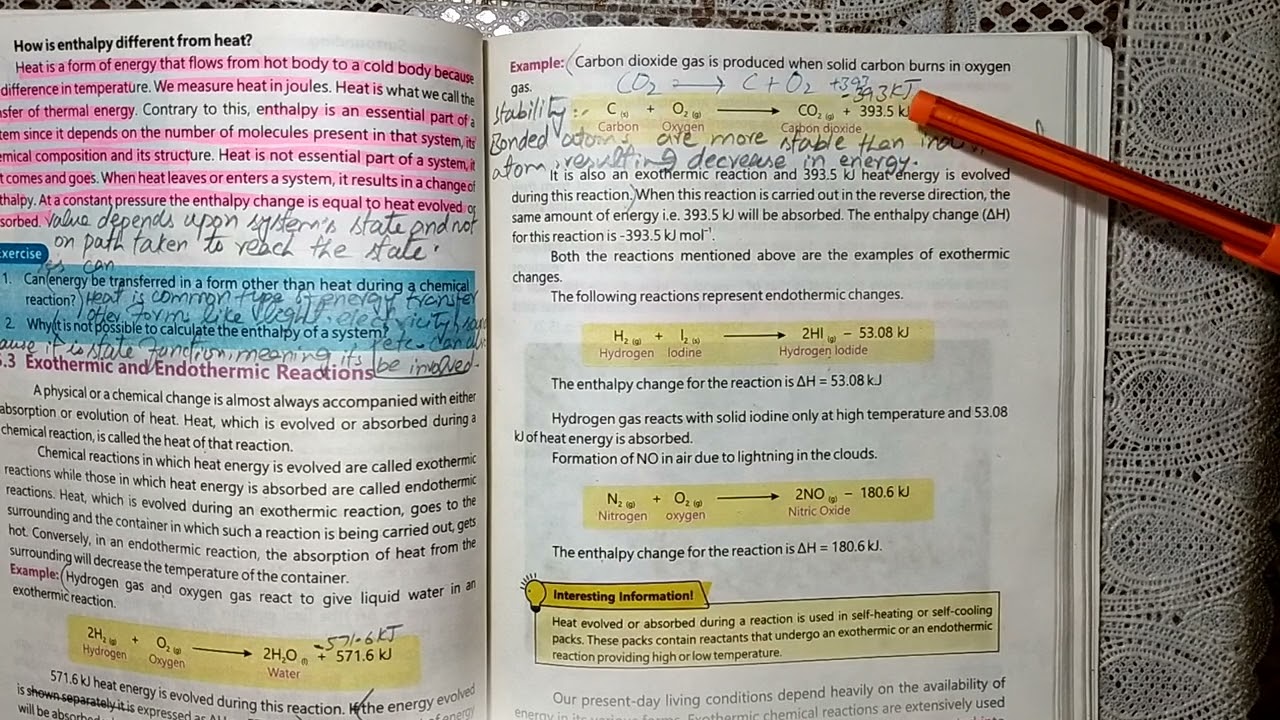 How is enthalpy different from heat?
Heat is a form of energy that flows from hot body to a cold body because
difference in temperature. We measure heat in joules. Heat is what we call the
sfer of thermal energy. Contrary to this, enthalpy is an essential part of a
tem since it depends on the number of molecules present in that system, its
emical composition and its structure. Heat is not essential part of a system, it
t comes and goes. When heat leaves or enters a system, it results in a change of
thalpy. At a constant pressure the enthalpy change is equal to heat evolved or
sorbed. Value depends upon system's state and not
on path taken to reach the state.
Exercise
can
1. Can energy be transferred in a form other than heat during a chemical
reaction? Heat is common type of energy transfer
other forms like light, electricity
2. Why it is not possible to calculate the enthalpy of a system?
cause it is state function, meaning its be involved.
5.3 Exothermic and Endothermic Reactions
A physical or a chemical change is almost always accompanied with either
absorption or evolution of heat. Heat, which is evolved or absorbed during a
chemical reaction, is called the heat of that reaction.
Chemical reactions in which heat energy is evolved are called exothermic
reactions while those in which heat energy is absorbed are called endothermic
reactions. Heat, which is evolved during an exothermic reaction, goes to the
surrounding and the container in which such a reaction is being carried out, gets
hot. Conversely, in an endothermic reaction, the absorption of heat from the
surrounding will decrease the temperature of the container.
Example: (Hydrogen gas and oxygen gas react to give liquid water in an
exothermic reaction.
-571.6 kJ
2H₂ (g) + O₂ (g) ⟶ 2H₂O (l) + 571.6 kJ
Hydrogen Oxygen Water
571.6 kJ heat energy is evolved during this reaction. If the energy evolved
is shown separately it is expressed as
will be absorbed
Example: (Carbon dioxide gas is produced when solid carbon burns in oxygen
gas.
CO₂ ⟶ C + O₂ +393
-393 kJ
stability:-
C (s) + O₂ (g) ⟶ CO₂ (g) + 393.5 kJ
Carbon Oxygen Carbon dioxide
Bonded atoms are more stable than
atom, resulting decrease in energy.
It is also an exothermic reaction and 393.5 kJ heat energy is evolved
during this reaction.) When this reaction is carried out in the reverse direction, the
same amount of energy i.e. 393.5 kJ will be absorbed. The enthalpy change (ΔH)
for this reaction is -393.5 kJ mol⁻¹.
Both the reactions mentioned above are the examples of exothermic
changes.
The following reactions represent endothermic changes.
H₂ (g) + I₂ (s) ⟶ 2HI (g) − 53.08 kJ
Hydrogen Iodine Hydrogen Iodide
The enthalpy change for the reaction is ΔH = 53.08 kJ
Hydrogen gas reacts with solid iodine only at high temperature and 53.08
kJ of heat energy is absorbed.
Formation of NO in air due to lightning in the clouds.
N₂ (g) + O₂ (g) ⟶ 2NO (g) − 180.6 kJ
Nitrogen oxygen Nitric Oxide
The enthalpy change for the reaction is ΔH = 180.6 kJ.
Interesting Information!
Heat evolved or absorbed during a reaction is used in self-heating or self-cooling
packs. These packs contain reactants that undergo an exothermic or an endothermic
reaction providing high or low temperature.
Our present-day living conditions depend heavily on the availability of
energy in its various forms. Exothermic chemical reactions are extensively used